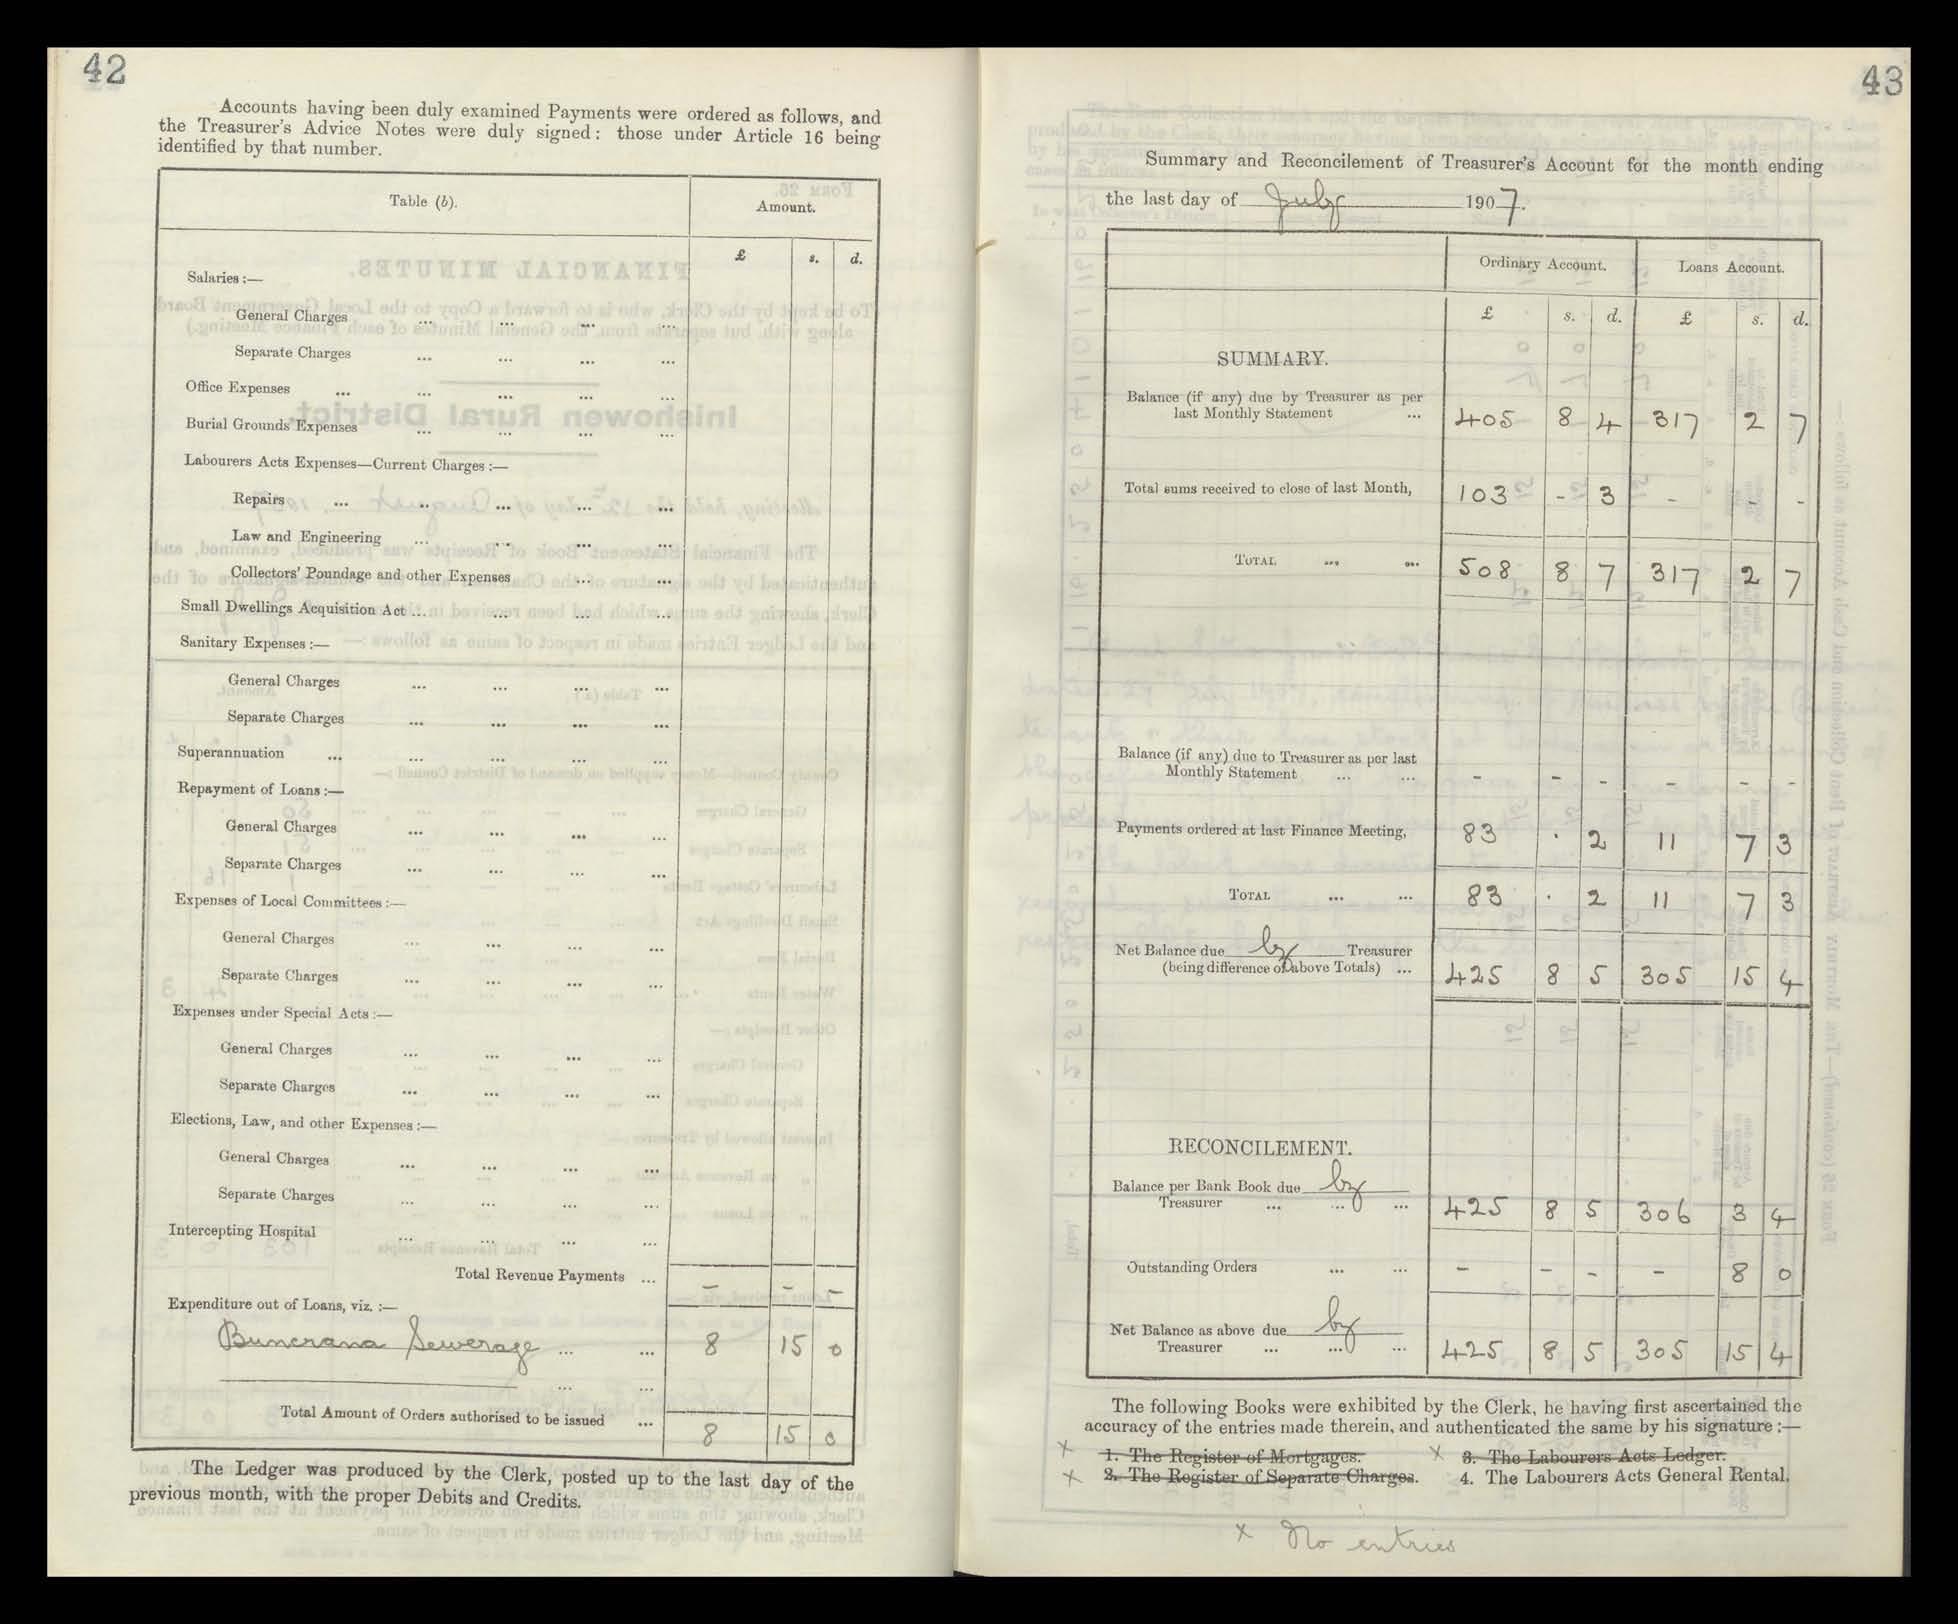 42
Accounts having been duly examined Payments were ordered as follows, and
the Treasurer's Advice Notes were duly signed: those under Article 16 being
identified by that number.
Table (b). Amount.
£ s. d.
Salaries :—
General Charges ... ... ... ...
Separate Charges ... ... ... ...
Office Expenses ... ... ... ... ...
Burial Grounds Expenses ... ... ... ...
Labourers Acts Expenses—Current Charges :—
Repairs ... ... ... ... ...
Law and Engineering ... ... ... ...
Collectors' Poundage and other Expenses ... ...
Small Dwellings Acquisition Act ... ... ... ...
Sanitary Expenses :—
General Charges ... ... ... ...
Separate Charges ... ... ... ...
Superannuation ... ... ... ... ...
Repayment of Loans :—
General Charges ... ... ... ...
Separate Charges ... ... ... ...
Expenses of Local Committees :—
General Charges ... ... ... ...
Separate Charges ... ... ... ...
Expenses under Special Acts :—
General Charges ... ... ... ...
Separate Charges ... ... ... ...
Elections, Law, and other Expenses :—
General Charges ... ... ... ...
Separate Charges ... ... ... ...
Intercepting Hospital ... ... ... ...
Total Revenue Payments ... – – –
Expenditure out of Loans, viz. :—
Buncrana Sewerage ... ... 8 15 0
... ...
Total Amount of Orders authorised to be issued ... 8 15 0
The Ledger was produced by the Clerk, posted up to the last day of the
previous month, with the proper Debits and Credits.
43
Summary and Reconcilement of Treasurer's Account for the month ending
the last day of July 1907.
Ordinary Account. Loans Account.
£ s. d. £ s. d.
SUMMARY.
Balance (if any) due by Treasurer as per
last Monthly Statement ... 405 8 4 317 2 7
Total sums received to close of last Month, 103 - 3 - - -
TOTAL ... ... 508 8 7 317 2 7
Balance (if any) due to Treasurer as per last
Monthly Statement ... ... - - - - - -
Payments ordered at last Finance Meeting, 83 . 2 11 7 3
TOTAL ... ... 83 . 2 11 7 3
Net Balance due by Treasurer
(being difference of above Totals) ... 425 8 5 305 15 4
RECONCILEMENT.
Balance per Bank Book due by
Treasurer ... ... ... 425 8 5 306 3 4
Outstanding Orders ... ... - - - - 8 0
Net Balance as above due by
Treasurer ... ... ... 425 8 5 305 15 4
The following Books were exhibited by the Clerk, he having first ascertained the
accuracy of the entries made therein, and authenticated the same by his signature :—
x 1. The Register of Mortgages. x 3. The Labourers Acts Ledger.
x 2. The Register of Separate Charges. 4. The Labourers Acts General Rental.
x No entries